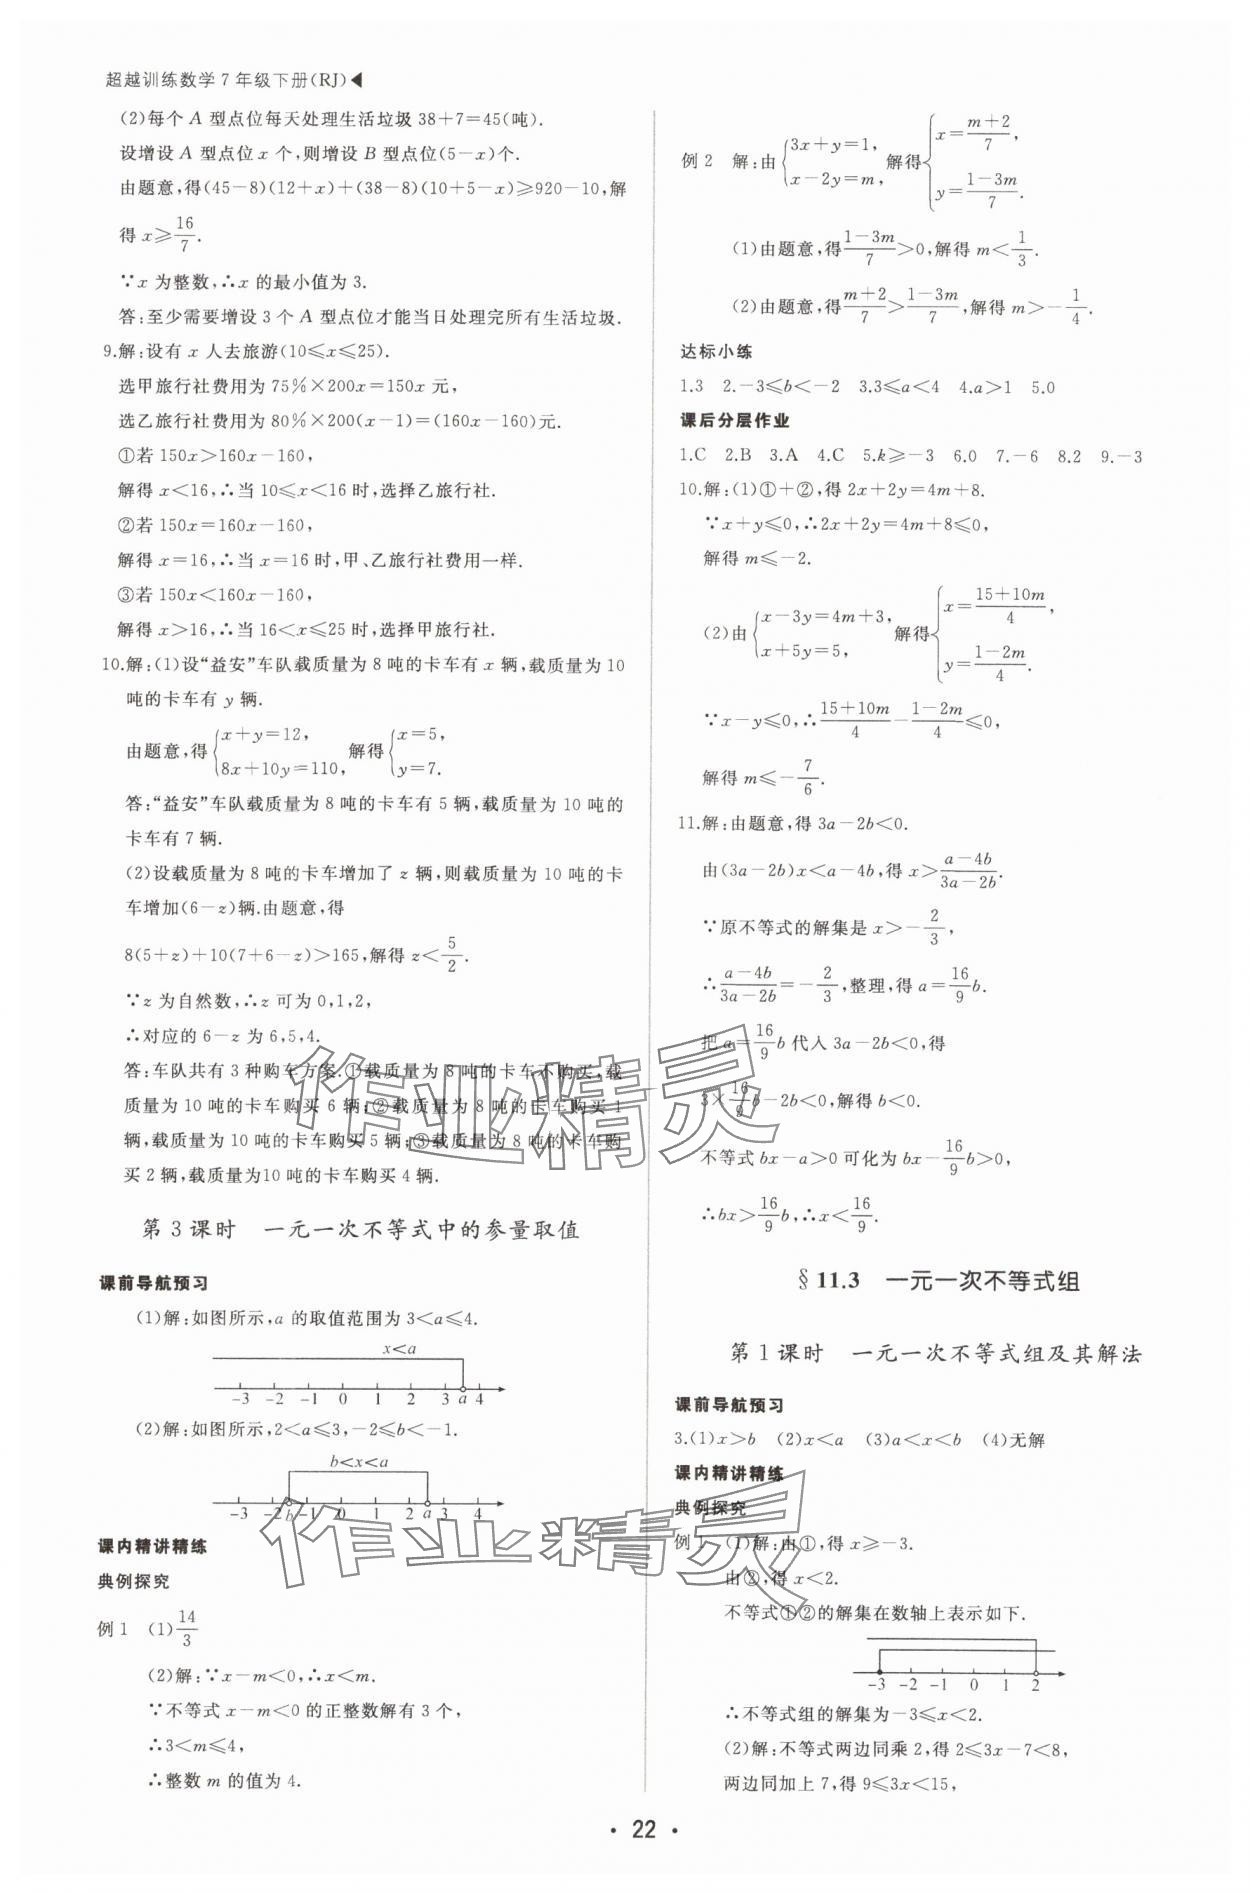 超越训练数学7年级下册(RJ)◀
(2)每个A型点位每天处理生活垃圾38+7=45(吨).
设增设A型点位x个,则增设B型点位(5-x)个.
由题意,得(45-8)(12+x)+(38-8)(10+5-x)≥920-10,解
得x≥16/7.
∵x为整数,∴x的最小值为3.
答:至少需要增设3个A型点位才能当日处理完所有生活垃圾.
9.解:设有x人去旅游(10≤x≤25).
选甲旅行社费用为75%×200x=150x元,
选乙旅行社费用为80%×200(x-1)=(160x-160)元.
①若150x>160x-160,
解得x<16,∴当10≤x<16时,选择乙旅行社.
②若150x=160x-160,
解得x=16,∴当x=16时,甲、乙旅行社费用一样.
③若150x<160x-160,
解得x>16,∴当16<x≤25时,选择甲旅行社.
10.解:(1)设“益安”车队载质量为8吨的卡车有x辆,载质量为10
吨的卡车有y辆.
由题意,得{x+y=12, 8x+10y=110, 解得{x=5, y=7.
答:“益安”车队载质量为8吨的卡车有5辆,载质量为10吨的
卡车有7辆.
(2)设载质量为8吨的卡车增加了z辆,则载质量为10吨的卡
车增加(6-z)辆.由题意,得
8(5+z)+10(7+6-z)>165,解得z<5/2.
∵z为自然数,∴z可为0,1,2,
∴对应的6-z为6,5,4.
答:车队共有3种购车方案.①载质量为8吨的卡车不购买,载
质量为10吨的卡车购买6辆;②载质量为8吨的卡车购买1
辆,载质量为10吨的卡车购买5辆;③载质量为8吨的卡车购
买2辆,载质量为10吨的卡车购买4辆.
第3课时 一元一次不等式中的参量取值
课前导航预习
(1)解:如图所示,a的取值范围为3<a≤4.
x<a
-3 -2 -1 0 1 2 3 a 4
(2)解:如图所示,2<a≤3,-2≤b<-1.
b<x<a
-3 -2 b -1 0 1 2 a 3 4
课内精讲精练
典例探究
例1 (1)14/3
(2)解:∵x-m<0,∴x<m.
∵不等式x-m<0的正整数解有3个,
∴3<m≤4,
∴整数m的值为4.
例2 解:由{3x+y=1, x-2y=m, 解得{x=(m+2)/7, y=(1-3m)/7.
(1)由题意,得(1-3m)/7>0,解得m<1/3.
(2)由题意,得(m+2)/7>(1-3m)/7,解得m>-1/4.
达标小练
1.3 2.-3≤b<-2 3.3≤a<4 4.a>1 5.0
课后分层作业
1.C 2.B 3.A 4.C 5.k≥-3 6.0 7.-6 8.2 9.-3
10.解:(1)①+②,得2x+2y=4m+8.
∵x+y≤0,∴2x+2y=4m+8≤0,
解得m≤-2.
(2)由{x-3y=4m+3, x+5y=5, 解得{x=(15+10m)/4, y=(1-2m)/4.
∵x-y≤0,∴(15+10m)/4-(1-2m)/4≤0,
解得m≤-7/6.
11.解:由题意,得3a-2b<0.
由(3a-2b)x<a-4b,得x>(a-4b)/(3a-2b).
∵原不等式的解集是x>-2/3,
∴(a-4b)/(3a-2b)=-2/3,整理,得a=16/9b.
把a=16/9b代入3a-2b<0,得
3×16/9b-2b<0,解得b<0.
不等式bx-a>0可化为bx-16/9b>0,
∴bx>16/9b,∴x<16/9.
§11.3 一元一次不等式组
第1课时 一元一次不等式组及其解法
课前导航预习
3.(1)x>b (2)x<a (3)a<x<b (4)无解
课内精讲精练
典例探究
例1 (1)解:由①,得x≥-3.
由②,得x<2.
不等式①②的解集在数轴上表示如下.
-3 -2 -1 0 1 2
∴不等式组的解集为-3≤x<2.
(2)解:不等式两边同乘2,得2≤3x-7<8,
两边同加上7,得9≤3x<15,
作业精灵
作业精灵
• 22 •